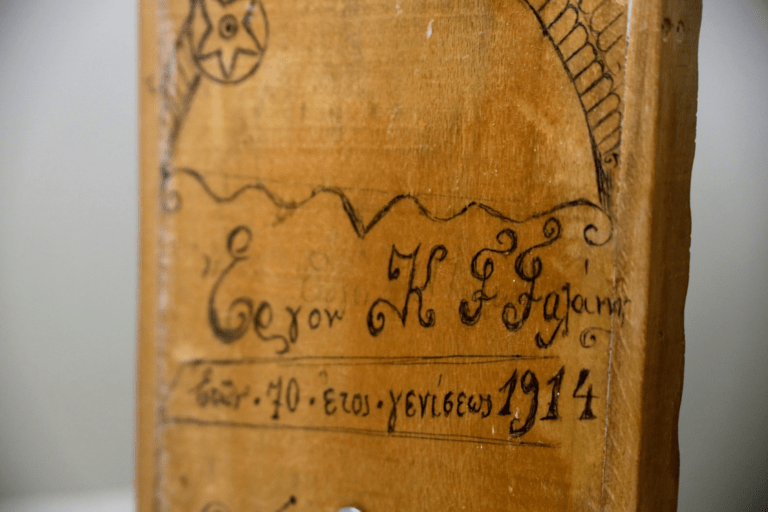 Ἔργον Κ Γ Γαλάνη
ἐτῶν·70·ἔτος·γενίσεως 1914